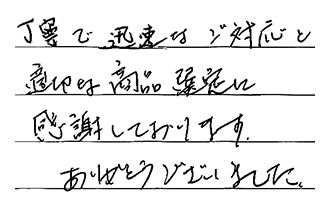 丁寧で迅速なご対応と
適切な商品選定に
感謝しております。
ありがとうございました。